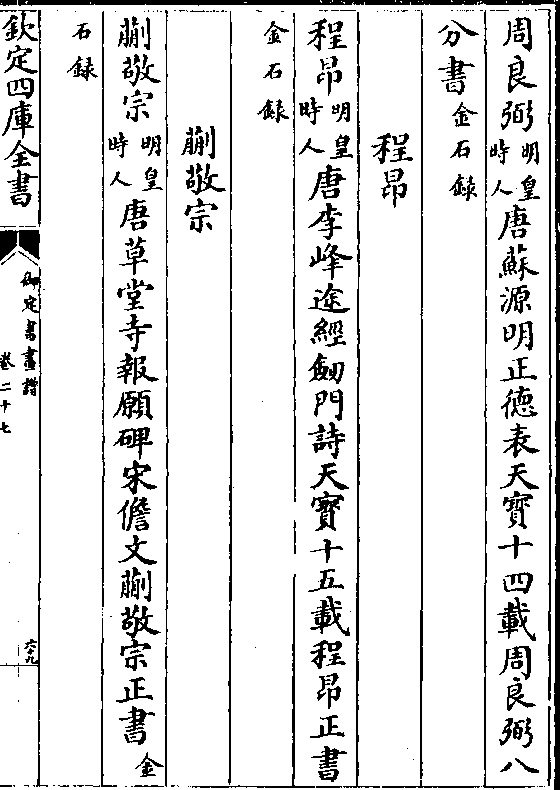 周良弼明皇時人唐蘇源明正德表天寳十四載周良弼八
分書金石録
程昂
程昂明皇時人唐李峰途經劒門詩天寳十五載程昂正書
金石録
蒯敬宗
蒯敬宗明皇時人唐草堂寺報願碑宋儋文蒯敬宗正書金
石録
欽定四庫全書
御定書畫譜
卷二十七
六九